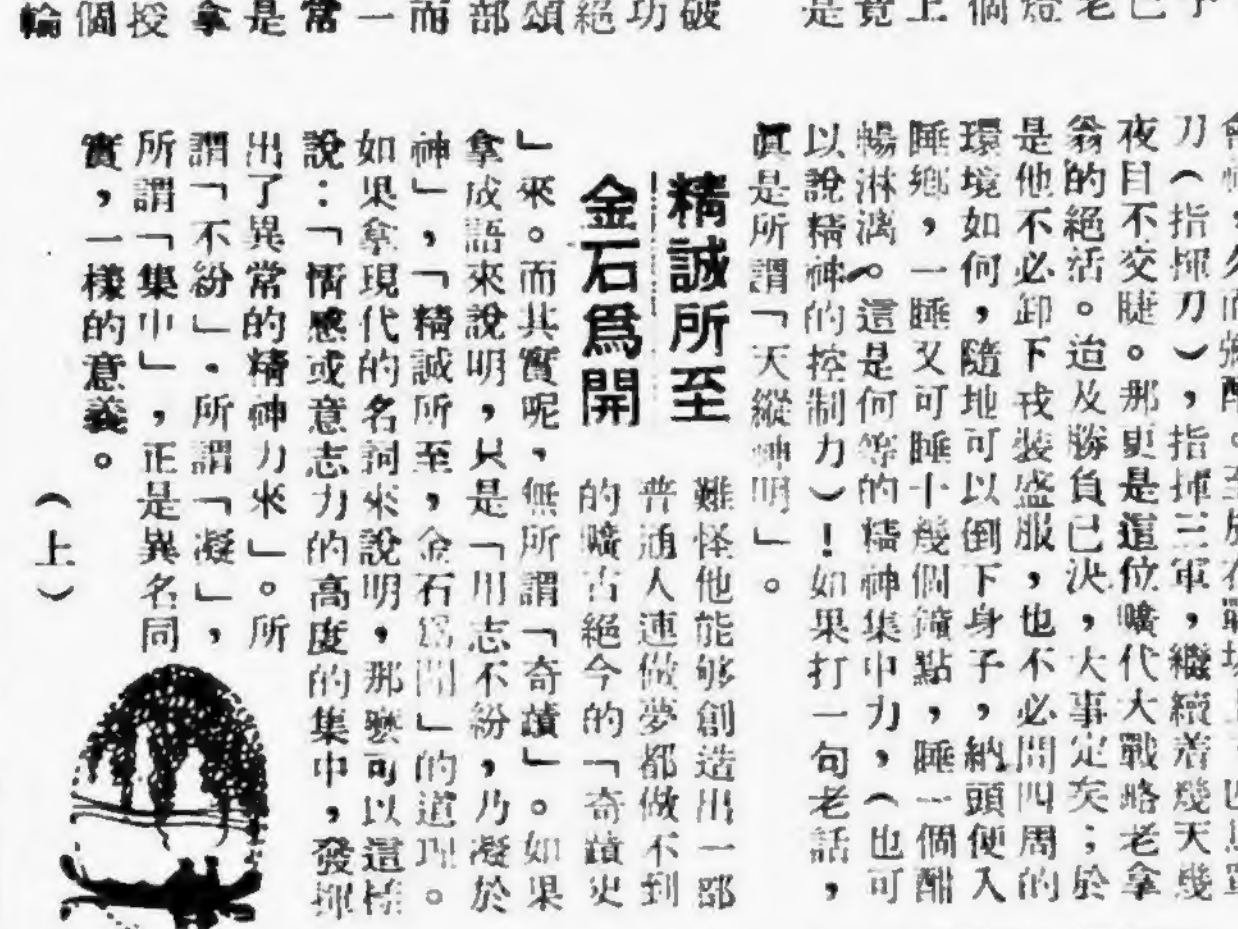 破
功
絕
頌
部
而
一
常
是
拿
授
個
輪
刀（指揮刀），指揮三軍，繼續着幾天幾
夜目不交睫。那更是這位曠代大戰略老拿
翁的絕活。迨及勝負已決，大事定矣；於
是他不必卸下戎裝盛服，也不必問四周的
環境如何，隨地可以倒下身子，納頭便入
睡鄉，一睡又可睡十幾個鐘點，睡一個酣
暢淋漓。這是何等的精神集中力，（也可
以說精神的控制力）！如果打一句老話，
眞是所謂「天縱神明」。
精誠所至
金石爲開
難怪他能够創造出一部
普通人連做夢都做不到
的曠古絕今的「奇蹟史
」來。而其實呢，無所謂「奇蹟」。如果
拿成語來說明，只是「用志不紛，乃凝於
神」，「精誠所至，金石爲開」的道理。
如果拿現代的名詞來說明，那麼可以這樣
說：「情感或意志力的高度的集中，發揮
出了異常的精神力來」。所
謂「不紛」．所謂「凝」，
所謂「集中」，正是異名同
實，一樣的意義。
（上）